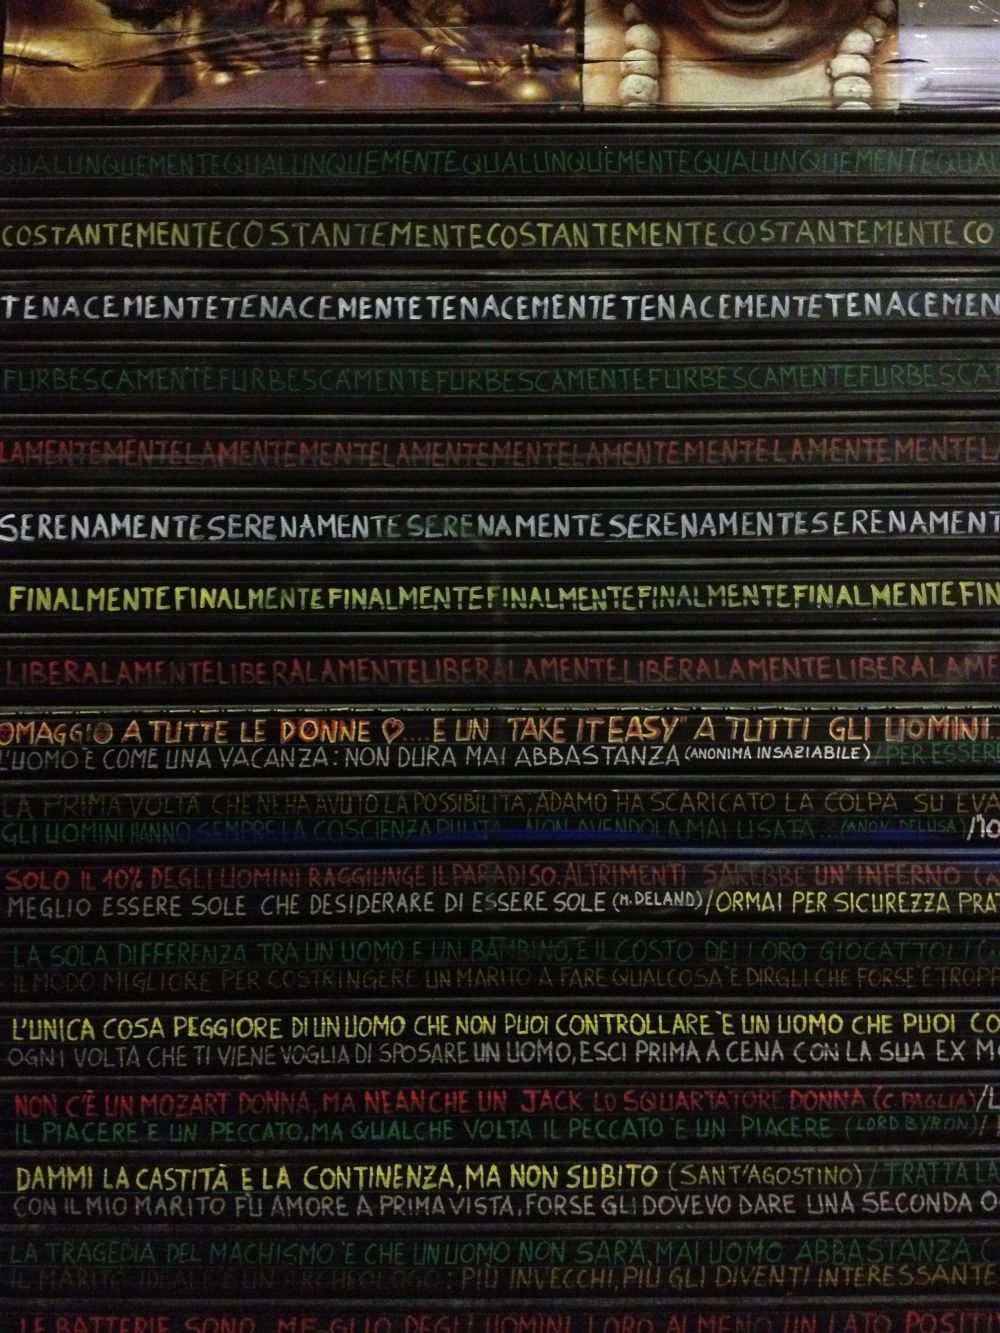 QUALUNQUEMENTEQUALUNQUEMENTEQUALUNQUEMENTEQUALUNQUEMENTEQUAL
COSTANTEMENTECOSTANTEMENTECOSTANTEMENTECOSTANTEMENTE CO
TENACEMENTETENACEMENTETENACEMENTETENACEMENTETENACEMEN
FURBESCAMENTEFURBESCAMENTEFURBESCAMENTEFURBESCAMENTEFURBESCA
LAMENTEMENTELAMENTEMENTELAMENTEMENTELAMENTEMENTELAMENTEMENTEL
SERENAMENTESERENAMENTESERENAMENTESERENAMENTESERENAMENT
FINALMENTEFINALMENTEFINALMENTEFINALMENTEFINALMENTEFINALMENTEFIN
LIBERALAMENTELIBERALAMENTELIBERALAMENTELIBERALAMENTELIBERALAME
OMAGGIO A TUTTE LE DONNE ♡....E UN TAKE IT EASY" A TUTTI GLI UOMINI..
L'UOMO È COME UNA VACANZA: NON DURA MAI ABBASTANZA (ANONIMA INSAZIABILE) /PER ESSER
LA PRIMA VOLTA CHE NE HA AVUTO LA POSSIBILITÀ, ADAMO HA SCARICATO LA COLPA SU EVA
GLI UOMINI HANNO SEMPRE LA COSCIENZA PULITA... NON AVENDOLA MAI USATA... (ANON. DELUSA) /IO
SOLO IL 10% DEGLI UOMINI RAGGIUNGE IL PARADISO. ALTRIMENTI SAREBBE UN'INFERNO (A
MEGLIO ESSERE SOLE CHE DESIDERARE DI ESSERE SOLE (M. DELAND) /ORMAI PER SICUREZZA PRAT
LA SOLA DIFFERENZA TRA UN UOMO E UN BAMBINO, È IL COSTO DEI LORO GIOCATTOLI (
IL MODO MIGLIORE PER COSTRINGERE UN MARITO A FARE QUALCOSA È DIRGLI CHE FORSE È TROPP
L'UNICA COSA PEGGIORE DI UN UOMO CHE NON PUOI CONTROLLARE È UN UOMO CHE PUOI CO
OGNI VOLTA CHE TI VIENE VOGLIA DI SPOSARE UN UOMO, ESCI PRIMA A CENA CON LA SUA EX M
NON C'È UN MOZART DONNA, MA NEANCHE UN JACK LO SQUARTATORE DONNA (C. PAGLIA) /L
IL PIACERE È UN PECCATO, MA QUALCHE VOLTA IL PECCATO È UN PIACERE (LORD BYRON) /
DAMMI LA CASTITÀ E LA CONTINENZA, MA NON SUBITO (SANT'AGOSTINO) / TRATTA LA
CON IL MIO MARITO FÙ AMORE A PRIMA VISTA, FORSE GLI DOVEVO DARE UNA SECONDA O
LA TRAGEDIA DEL MACHISMO È CHE UN UOMO NON SARÀ, MAI UOMO ABBASTANZA (
IL MARITO IDEALE È UN ARCHEOLOGO: PIÙ INVECCHI, PIÙ GLI DIVENTI INTERESSANTE
LE BATTERIE SONO MEGLIO DEGLI UOMINI LORO ALMENO UN LATO POSITI